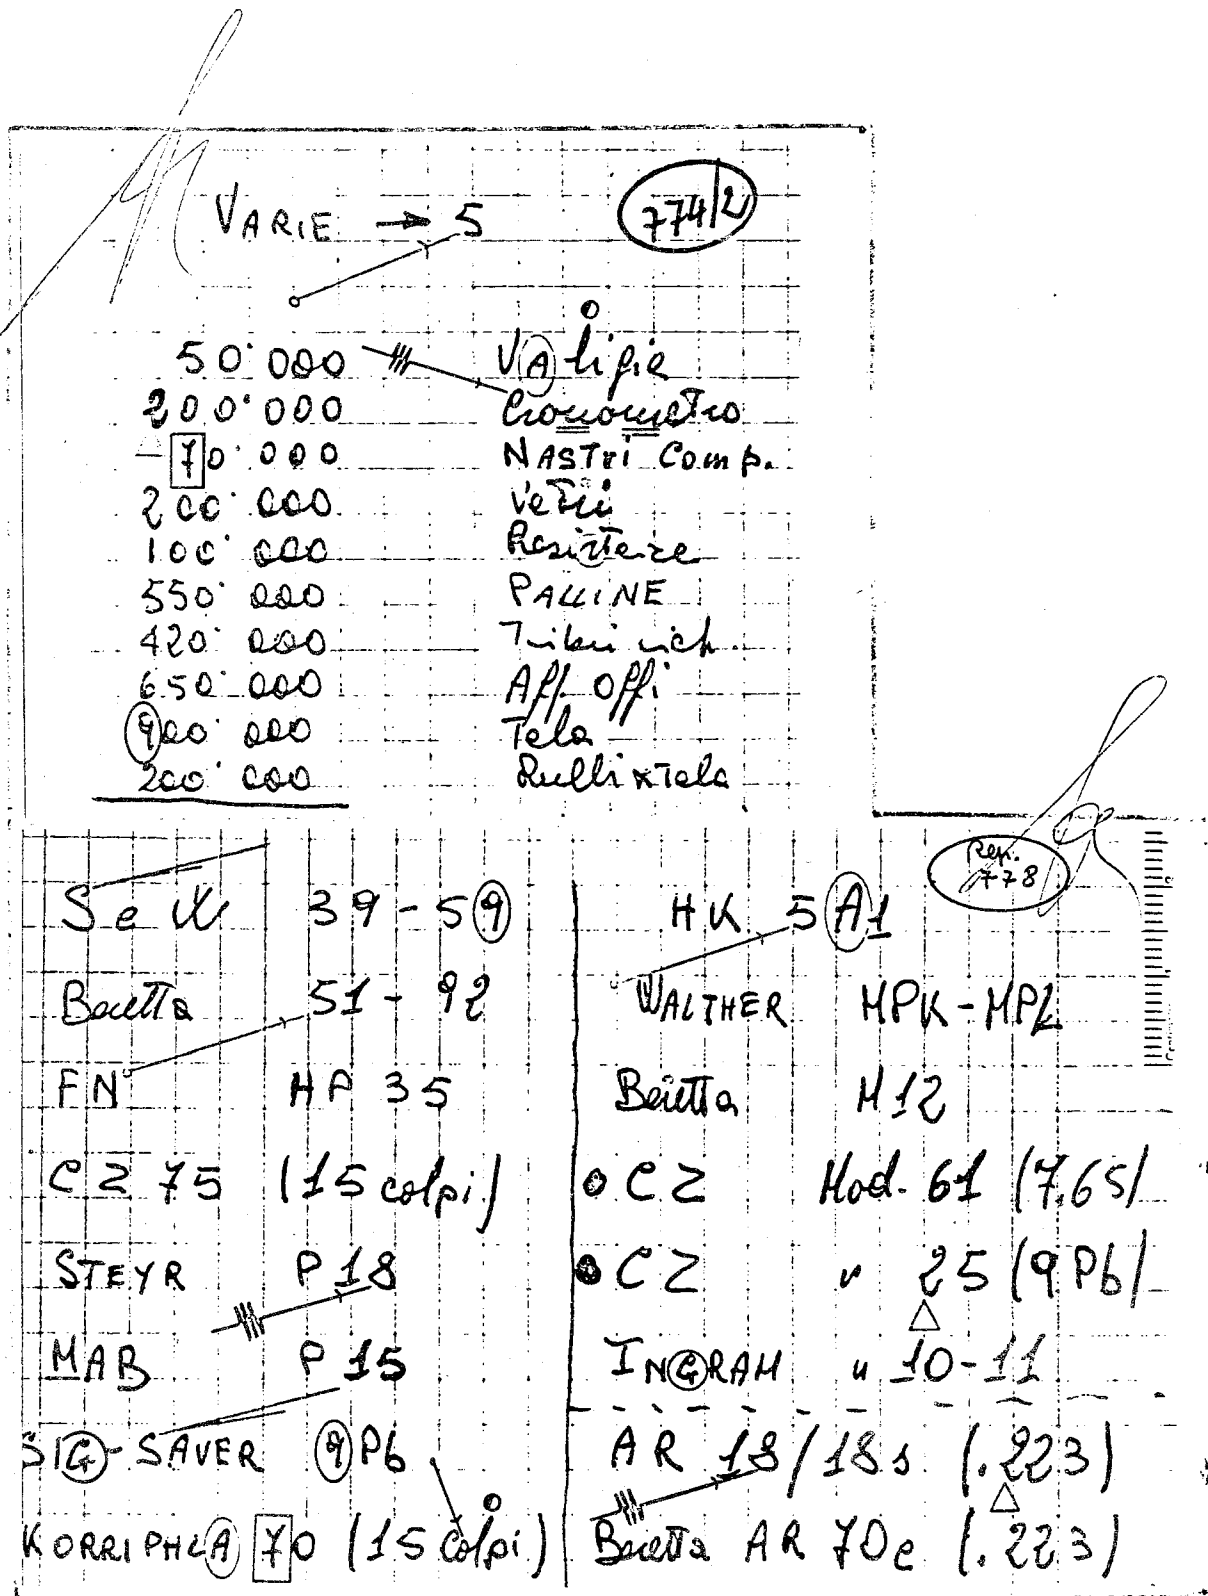 VARIE → 5
774/2
50'000 VAligie
200'000 Cronometro
70'000 NASTRI Comp.
200'000 Vetrii
100'000 Resistenze
550'000 PALLINE
420'000
650'000 Aff. offi
900'000 Tela
200'000 Rulli x Tela
Rep. 778
S e W 39-59
Beretta 51-92
FN HP 35
CZ 75 (15 colpi)
STEYR P18
MAB P 15
SIG-SAVER 9Pb
KORRIPHLA 70 (15 colpi)
HK 5A1
WALTHER MPK-MPL
Beretta M12
CZ Mod. 61 (7.65)
CZ " 25 (9 Pb)
INGRAM " 10-11
AR 18/18s (.223)
Beretta AR 70e (.223)